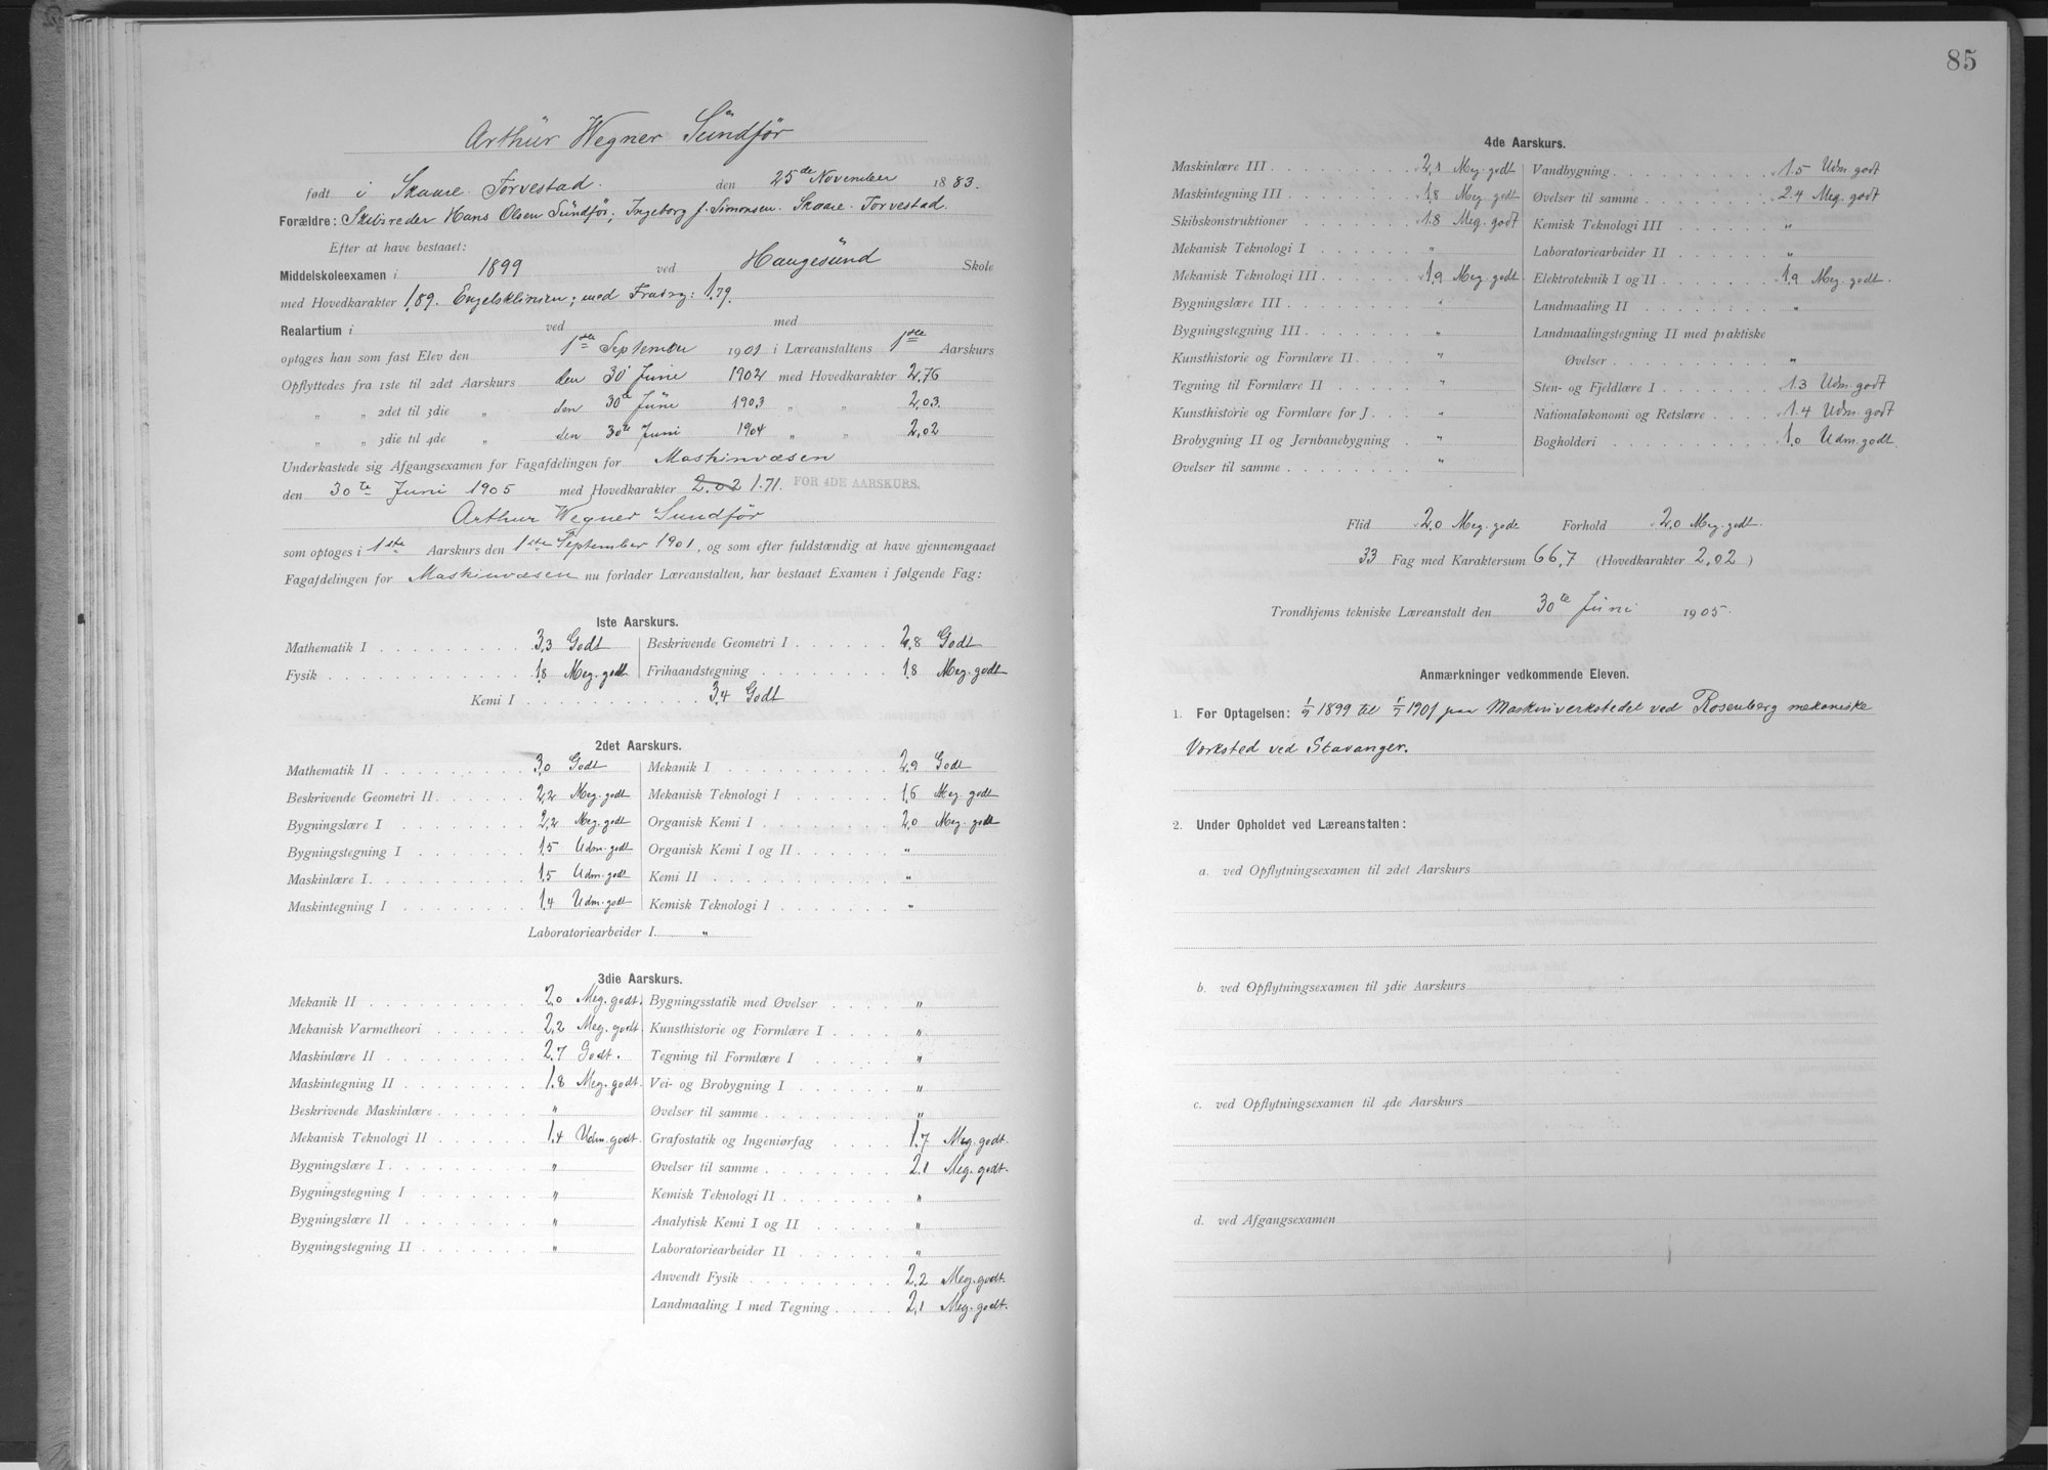 Arthur Wegner Sundför
født i Skaare Torvestad. den 25de November 1883.
Forældre: Skibsreder Hans Olsen Sundför; Ingeborg f. Simonsen. Skaare. Torvestad.
Efter at have bestaaet:
Middelskoleexamen i 1899 ved Haugesund Skole
med Hovedkarakter 1.89. Engelsklinien; med 1.79.
Realartium i ved med
optoges han som fast Elev den 1ste September 1901 i Læreanstaltens 1ste Aarskurs
Opflyttedes fra 1ste til 2det Aarskurs den 30' Juni 1902 med Hovedkarakter 2,76
„ „ 2det til 3die „ den 30te Juni 1903 „ „ 2,03.
„ „ 3die til 4de „ den 30te Juni 1904 „ „ 2,02
Underkastede sig Afgangsexamen for Fagafdelingen for Maskinvæsen
den 30te Juni 1905 med Hovedkarakter 2.02 1.71. FOR 4DE AARSKURS.
Arthur Wegner Sundför
som optoges i 1ste Aarskurs den 1ste September 1901, og som efter fuldstændig at have gjennemgaaet
Fagafdelingen for Maskinvæsen nu forlader Læreanstalten, har bestaaet Examen i følgende Fag:
1ste Aarskurs.
Mathematik I 3,3 Godt Beskrivende Geometri I 2,8 Godt
Fysik 1,8 Meg. godt Frihaandstegning 1,8 Meg. godt
Kemi I 3,4 Godt
2det Aarskurs.
Mathematik II 3,0 Godt Mekanik I 2,9 Godt
Beskrivende Geometri II 2,2 Meg. godt Mekanisk Teknologi I 1,6 Meg. godt
Bygningslære I 2,2 Meg. godt Organisk Kemi I 2,0 Meg. godt
Bygningstegning I 1,5 Udm. godt Organisk Kemi I og II „
Maskinlære I 1,5 Udm. godt Kemi II „
Maskintegning I 1,4 Udm. godt Kemisk Teknologi I „
Laboratoriearbeider I. „
3die Aarskurs.
Mekanik II 2,0 Meg. godt. Bygningsstatik med Øvelser „
Mekanisk Varmetheori 2,2 Meg. godt Kunsthistorie og Formlære I „
Maskinlære II 2.7 Godt. Tegning til Formlære I „
Maskintegning II 1.8 Meg. godt. Vei- og Brobygning I „
Beskrivende Maskinlære „ Øvelser til samme „
Mekanisk Teknologi II 1.4 Udm. godt. Grafostatik og Ingeniørfag 1.7 Meg. godt.
Bygningslære I „ Øvelser til samme 2.1 Meg. godt.
Bygningstegning I „ Kemisk Teknologi II „
Bygningslære II „ Analytisk Kemi I og II „
Bygningstegning II „ Laboratoriearbeider II „
Anvendt Fysik 2.2 Meg. godt.
Landmaaling I med Tegning 2,1 Meg. godt.
85
4de Aarskurs.
Maskinlære III 2,1 Meg. godt Vandbygning 1.5 Udm. godt
Maskintegning III 1,8 Meg. godt Øvelser til samme 2.4 Meg. godt
Skibskonstruktioner 1.8 Meg. godt Kemisk Teknologi III „
Mekanisk Teknologi I „ Laboratoriearbeider II „
Mekanisk Teknologi III 1,9 Meg. godt. Elektroteknik I og II 1,9 Meg. godt.
Bygningslære III „ Landmaaling II „
Bygningstegning III „ Landmaalingstegning II med praktiske
Kunsthistorie og Formlære II „ Øvelser „
Tegning til Formlære II „ Sten- og Fjeldlære I 1.3 Udm. godt
Kunsthistorie og Formlære for J. „ Nationaløkonomi og Retslære 1.4 Udm. godt
Brobygning II og Jernbanebygning „ Bogholderi 1,0 Udm. godt.
Øvelser til samme „
Flid 2,0 Meg. godt Forhold 2,0 Meg. godt.
33 Fag med Karaktersum 66,7 (Hovedkarakter 2,02)
Trondhjems tekniske Læreanstalt den 30te Juni 1905.
Anmærkninger vedkommende Eleven.
1. Før Optagelsen: 1899 til 1901 paa Maskinverkstedet ved Rosenberg mekaniske
Værksted ved Stavanger.
2. Under Opholdet ved Læreanstalten:
a. ved Opflytningsexamen til 2det Aarskurs
b. ved Opflytningsexamen til 3die Aarskurs
c. ved Opflytningsexamen til 4de Aarskurs
d. ved Afgangsexamen